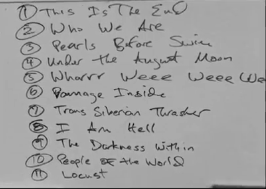 1 This Is The End
2 Who We Are
3 Pearls Before Swine
4 Under the August Moon
5 Wharrr Weee Weee We
6 Damage Inside
7 Trans Siberian Thrasher
8 I Am Hell
9 The Darkness Within
10 People of the World
11 Locust